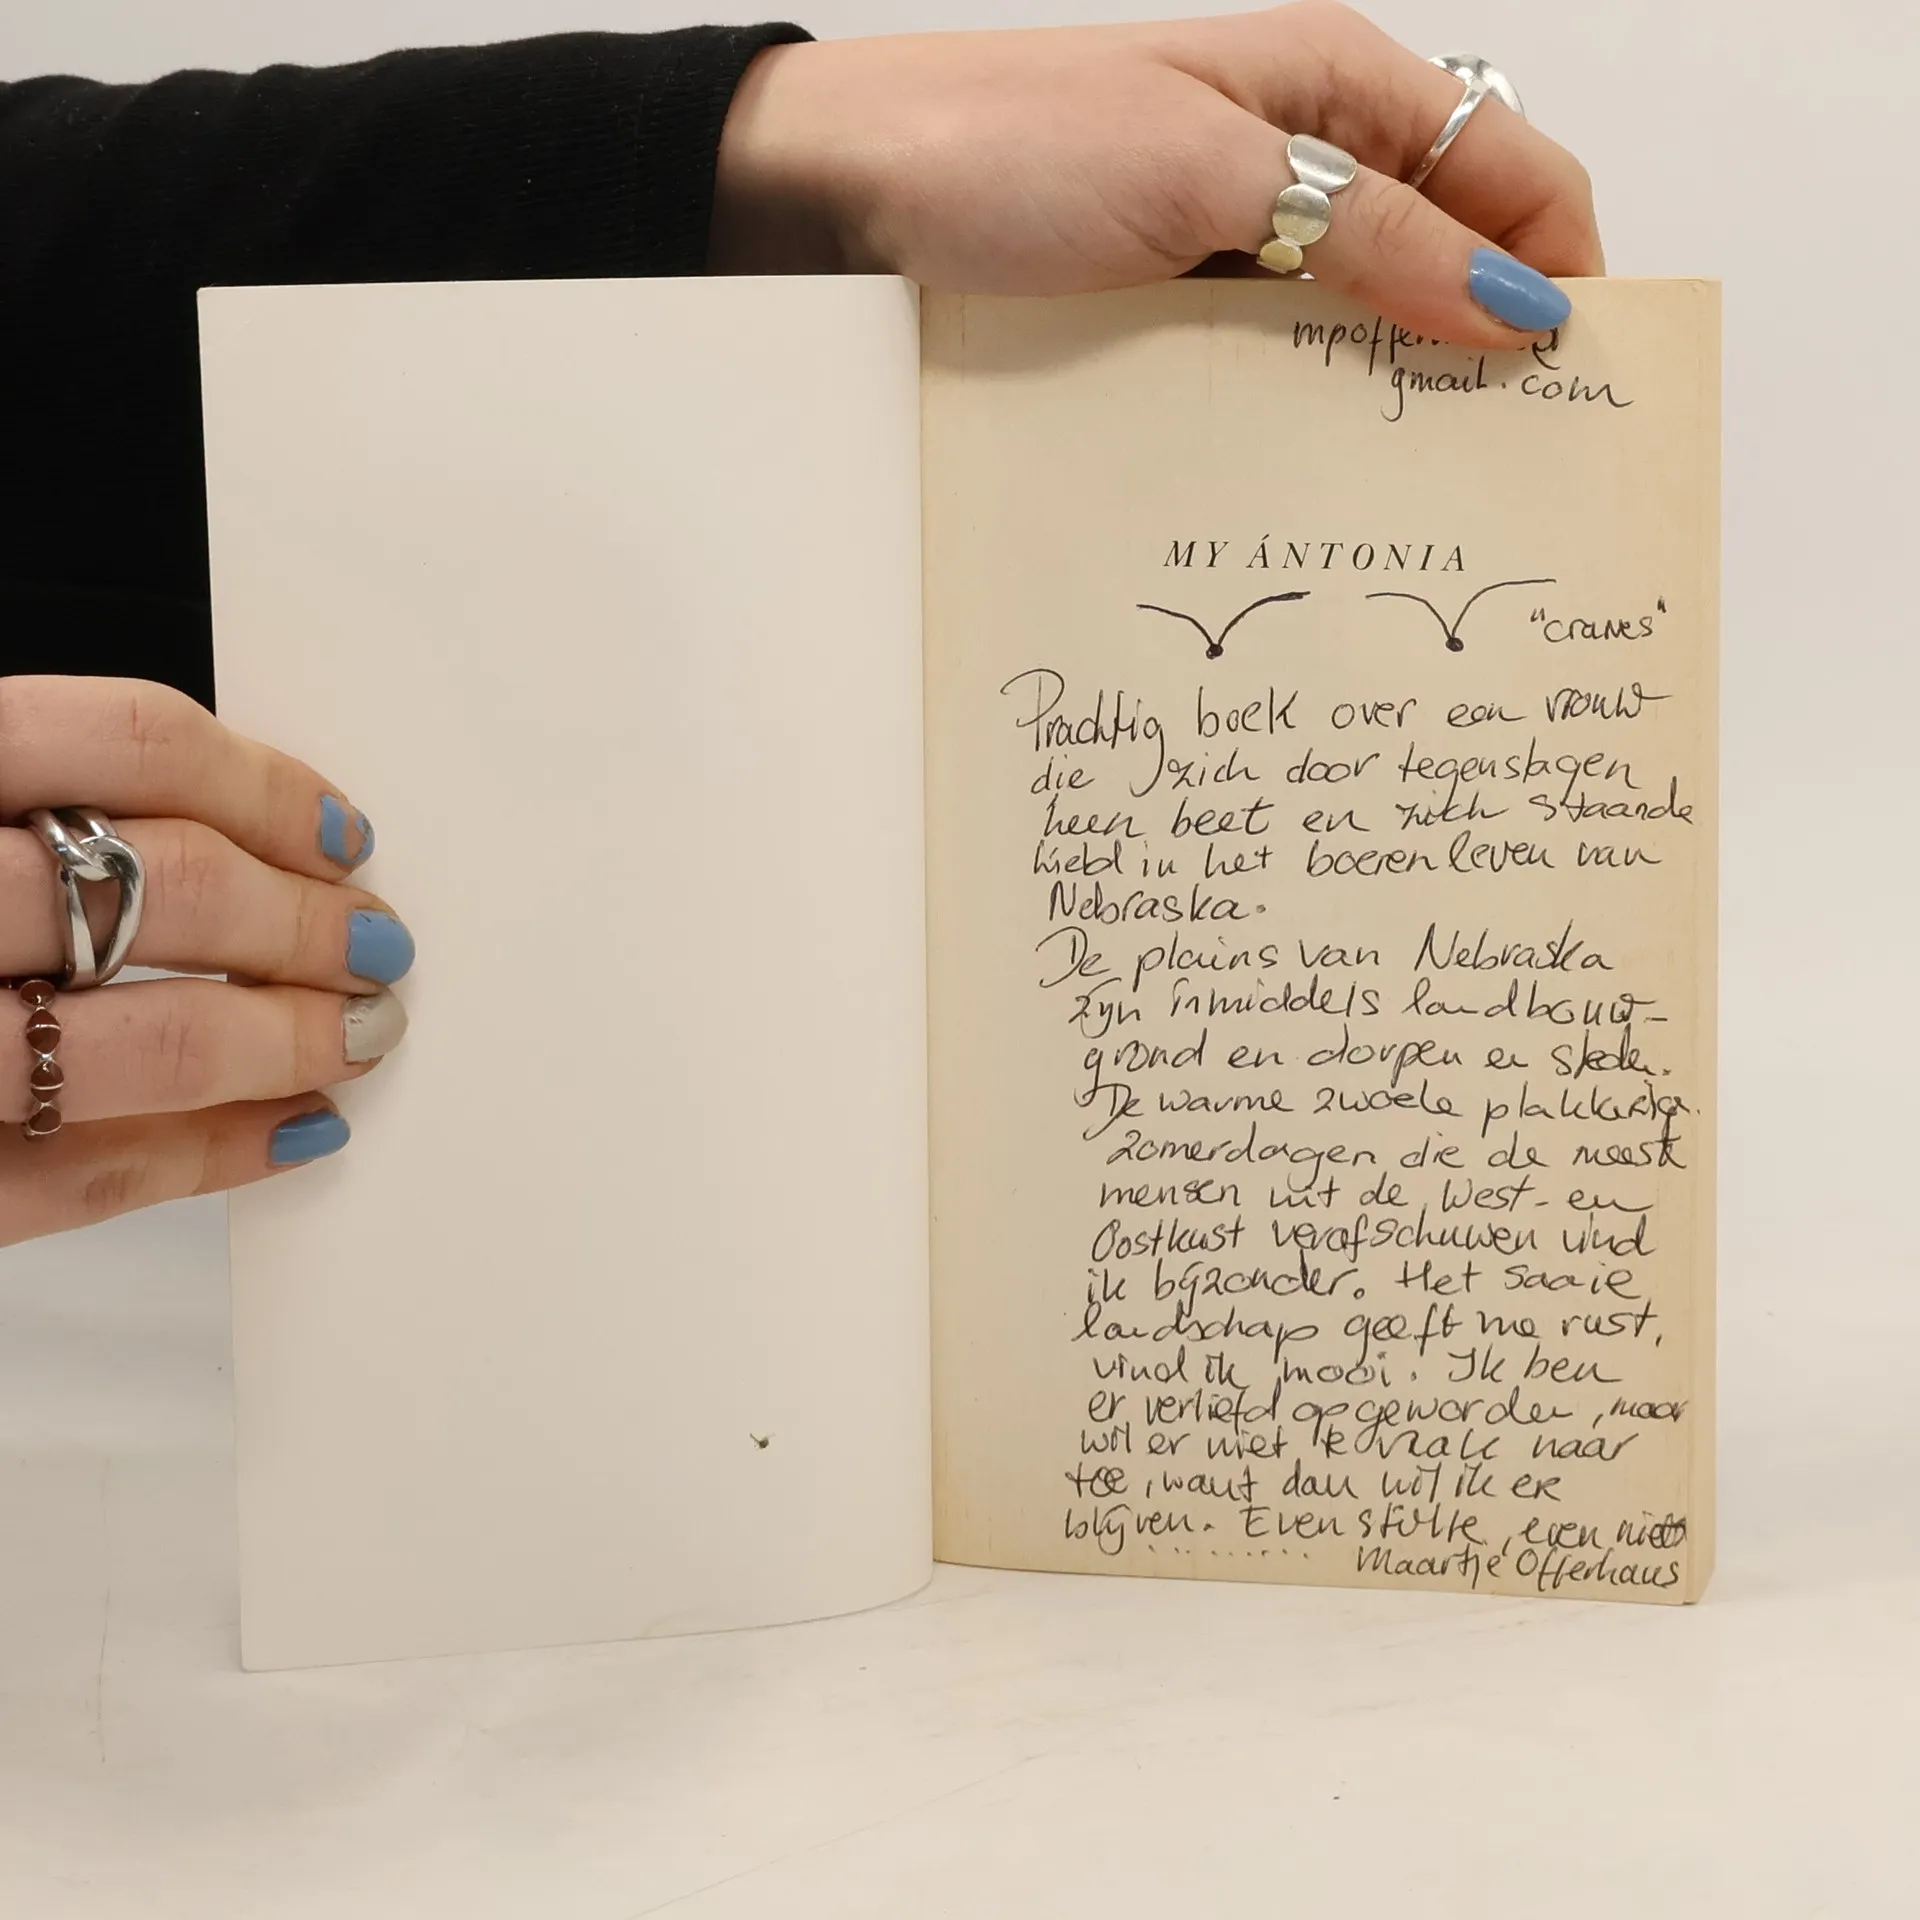 gmail.com
MY ÁNTONIA
"cranes"
Prachtig boek over een vrouw
die zich door tegenslagen
heen beet en zich staande
hield in het boerenleven van
Nebraska.
De plains van Nebraska
zijn inmiddels landbouw-
grond en dorpen en steden.
De warme zwoele plakkerige
zomerdagen die de meeste
mensen uit de West- en
Oostkust verafschuwen vind
ik bijzonder. Het saaie
landschap geeft me rust,
vind ik mooi. Ik ben
er verliefd op geworden, maar
wil er niet te vaak naar
toe, want dan wil ik er
blijven. Even stilte, even niets
........ Maartje Offerhaus